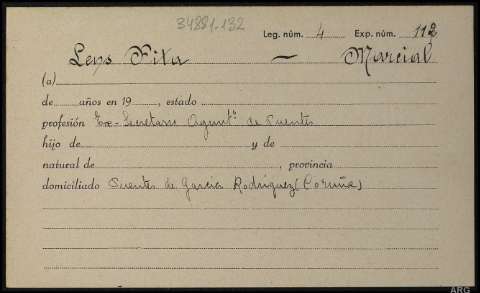 34881.132
Leg. núm. 4 Exp. núm. 112
Lens Pita — Marcial
(a)
de años en 19 , estado
profesión Ex-Secretario Ayuntº de Puentes
hijo de y de
natural de , provincia
domiciliado Puentes de García Rodríguez (Coruña)
ARG